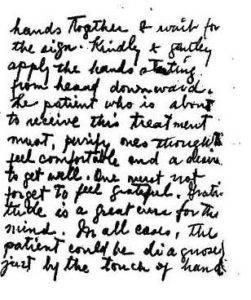 hands together & wait for
the sign. Kindly & gently
apply the hands starting
from head downward.
The patient who is about
to receive this treatment
must, purify ones thoughts
feel comfortable and a desire
to get well. One must not
forget to feel grateful. Grati-
tude is a great cure for the
mind. In all cases, the
patient could be diagnosed
just by the touch of hand